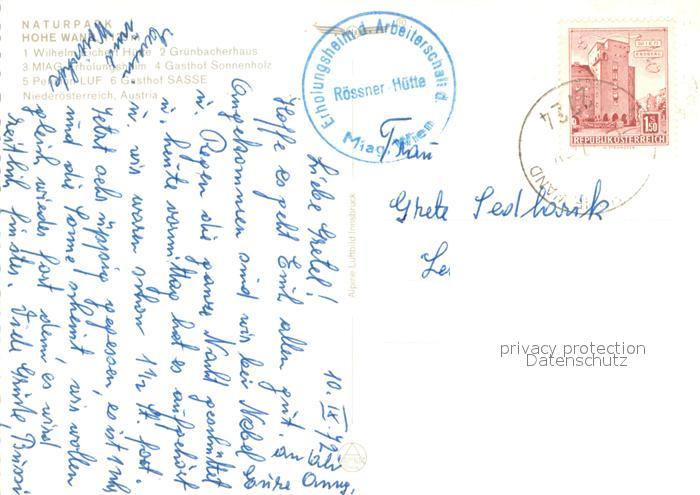 NATURPARK
HOHE WAND
1 Wilhelm Eichert Hütte 2 Grünbacherhaus
3 MIAG Erholungsheim 4 Gasthof Sonnenholz
5 LUF 6 Gasthof SASSE
Niederösterreich, Austria
Erholungsheim d. Arbeiterschaft d.
Rössner-Hütte
Miag, Wien
REPUBLIK ÖSTERREICH
1.50
2734
Frau
Grete Sedlarik
Alpine Luftbild Innsbruck
10. IX. 72
Liebe Gretel!
Hoffe es geht Euch allen gut.
Angekommen sind wir bei Nebel
u. Regen die ganze Nacht geschüttet
u. heute vormittag hat es aufgehört
u. wir waren schon 1½ St. fort.
Jetzt sehr üppig gegessen, es ist 1 Uhr
und die Sonne scheint wir wollen
gleich wieder fort denn es wird
zeitlich finster. Viele Grüße Bussi
Eure
privacy protection
Datenschutz